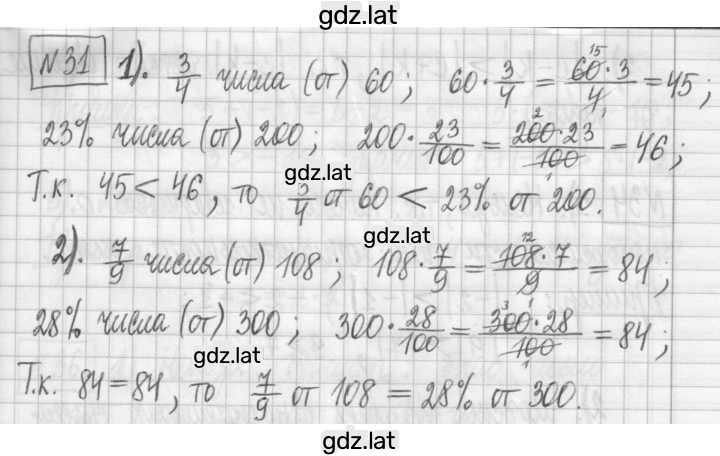 gdz.lat
№31 1). 3/4 числа (от) 60; 60 · 3/4 = 60 · 3/4 = 45;
15
23% числа (от) 200; 200 · 23/100 = 200 · 23/100 = 46;
2 1
1
gdz.lat
Т.к. 45 < 46, то 3/4 от 60 < 23% от 200.
gdz.lat
2). 7/9 числа (от) 108; 108 · 7/9 = 108 · 7/9 = 84;
12
28% числа (от) 300; 300 · 28/100 = 300 · 28/100 = 84;
3 1
1
gdz.lat
Т.к. 84 = 84, то 7/9 от 108 = 28% от 300.
gdz.lat